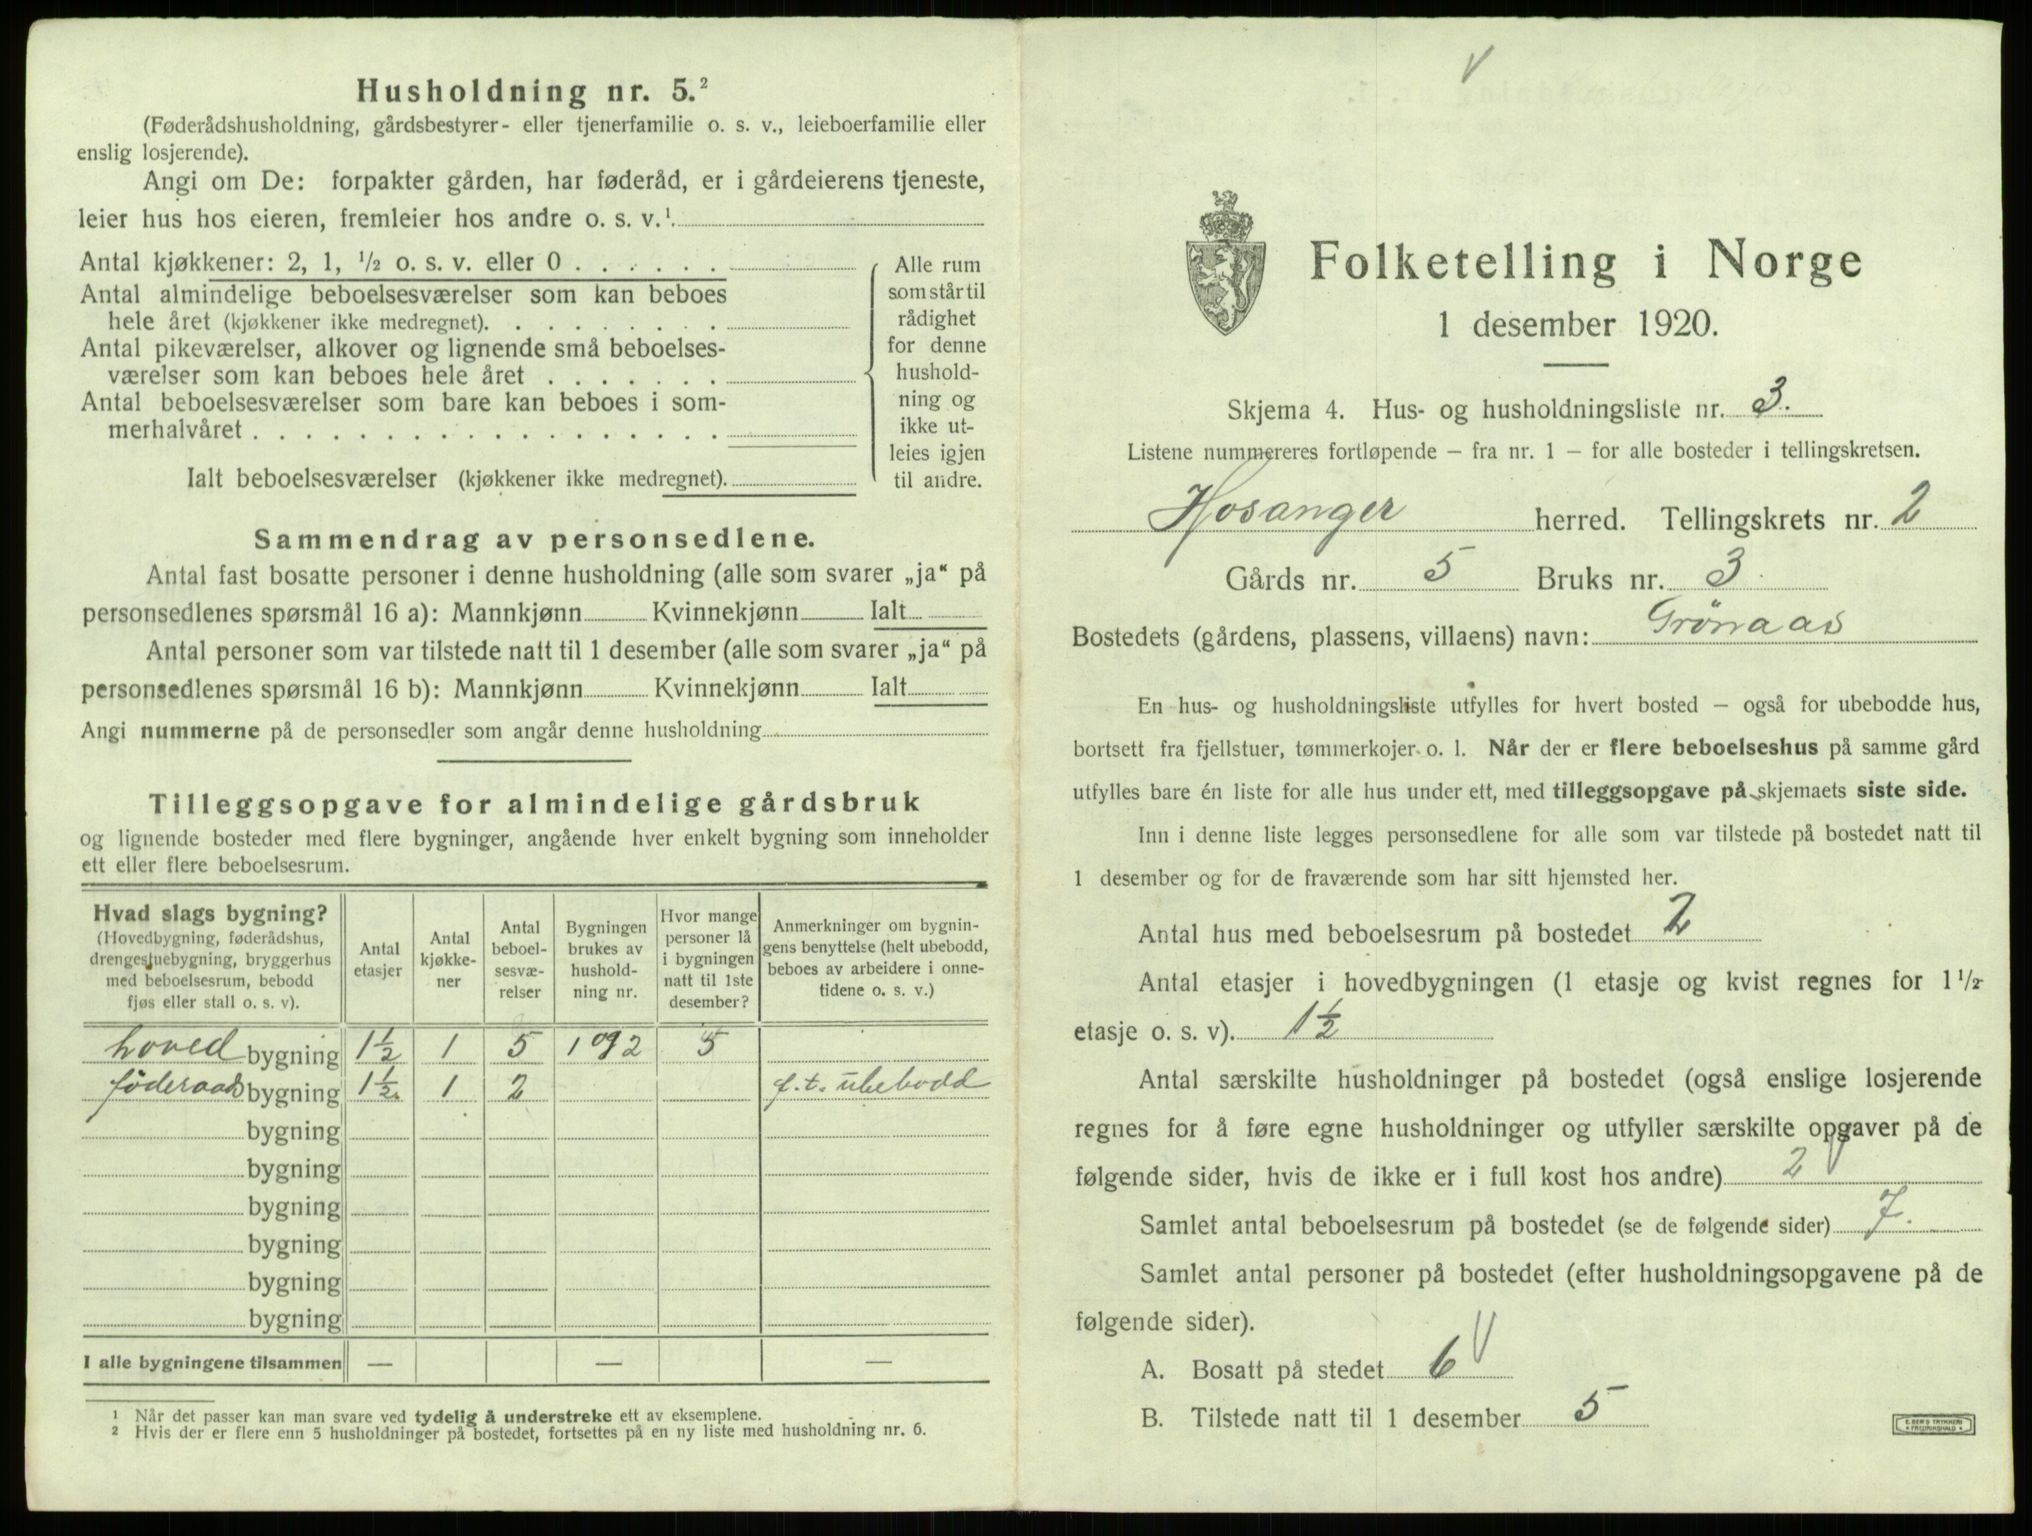 Husholdning nr. 5.²
(Føderådshusholdning, gårdsbestyrer- eller tjenerfamilie o. s. v., leieboerfamilie eller
enslig losjerende).
Angi om De: forpakter gården, har føderåd, er i gårdeierens tjeneste,
leier hus hos eieren, fremleier hos andre o. s. v.¹
Antal kjøkkener: 2, 1, ½ o. s. v. eller 0 . . . . . .
Antal almindelige beboelsesværelser som kan beboes
hele året (kjøkkener ikke medregnet). . . . . . . . .
Antal pikeværelser, alkover og lignende små beboelses-
værelser som kan beboes hele året . . . . . . .
Antal beboelsesværelser som bare kan beboes i som-
merhalvåret . . . . . . . . . . . . . . . . . .
Ialt beboelsesværelser (kjøkkener ikke medregnet).
Alle rum
som står til
rådighet
for denne
hushold-
ning og
ikke ut-
leies igjen
til andre.
Sammendrag av personsedlene.
Antal fast bosatte personer i denne husholdning (alle som svarer „ja“ på
personsedlenes spørsmål 16 a): Mannkjønn Kvinnekjønn Ialt
Antal personer som var tilstede natt til 1 desember (alle som svarer „ja“ på
personsedlenes spørsmål 16 b): Mannkjønn Kvinnekjønn Ialt
Angi nummerne på de personsedler som angår denne husholdning
Tilleggsopgave for almindelige gårdsbruk
og lignende bosteder med flere bygninger, angående hver enkelt bygning som inneholder
ett eller flere beboelsesrum.
Hvad slags bygning?
(Hovedbygning, føderådshus,
drengestuebygning, bryggerhus
med beboelsesrum, bebodd
fjøs eller stall o. s. v).
Antal
etasjer
Antal
kjøkke-
ner
Antal
beboel-
sesvæ-
relser
Bygningen
brukes av
hushold-
ning nr.
Hvor mange
personer lå
i bygningen
natt til 1ste
desember?
Anmerkninger om bygnin-
gens benyttelse (helt ubebodd,
beboes av arbeidere i onne-
tidene o. s. v.)
hoved bygning 1½ 1 5 1 og 2 5
føderaads bygning 1½ 1 2 f.t. ubebodd
bygning
bygning
bygning
bygning
bygning
bygning
I alle bygningene tilsammen — — —
¹ Når det passer kan man svare ved tydelig å understreke ett av eksemplene.
² Hvis der er flere enn 5 husholdninger på bostedet, fortsettes på en ny liste med husholdning nr. 6.
Folketelling i Norge
1 desember 1920.
Skjema 4. Hus- og husholdningsliste nr. 3.
Listene nummereres fortløpende – fra nr. 1 – for alle bosteder i tellingskretsen.
Hosanger herred. Tellingskrets nr. 2
Gårds nr. 5 Bruks nr. 3
Bostedets (gårdens, plassens, villaens) navn: Grønaas
En hus- og husholdningsliste utfylles for hvert bosted – også for ubebodde hus,
bortsett fra fjellstuer, tømmerkojer o. l. Når der er flere beboelseshus på samme gård
utfylles bare én liste for alle hus under ett, med tilleggsopgave på skjemaets siste side.
Inn i denne liste legges personsedlene for alle som var tilstede på bostedet natt til
1 desember og for de fraværende som har sitt hjemsted her.
Antal hus med beboelsesrum på bostedet 2
Antal etasjer i hovedbygningen (1 etasje og kvist regnes for 1½
etasje o. s. v). 1½
Antal særskilte husholdninger på bostedet (også enslige losjerende
regnes for å føre egne husholdninger og utfyller særskilte opgaver på de
følgende sider, hvis de ikke er i full kost hos andre) 2
Samlet antal beboelsesrum på bostedet (se de følgende sider) 7.
Samlet antal personer på bostedet (efter husholdningsopgavene på de
følgende sider).
A. Bosatt på stedet 6
B. Tilstede natt til 1 desember 5